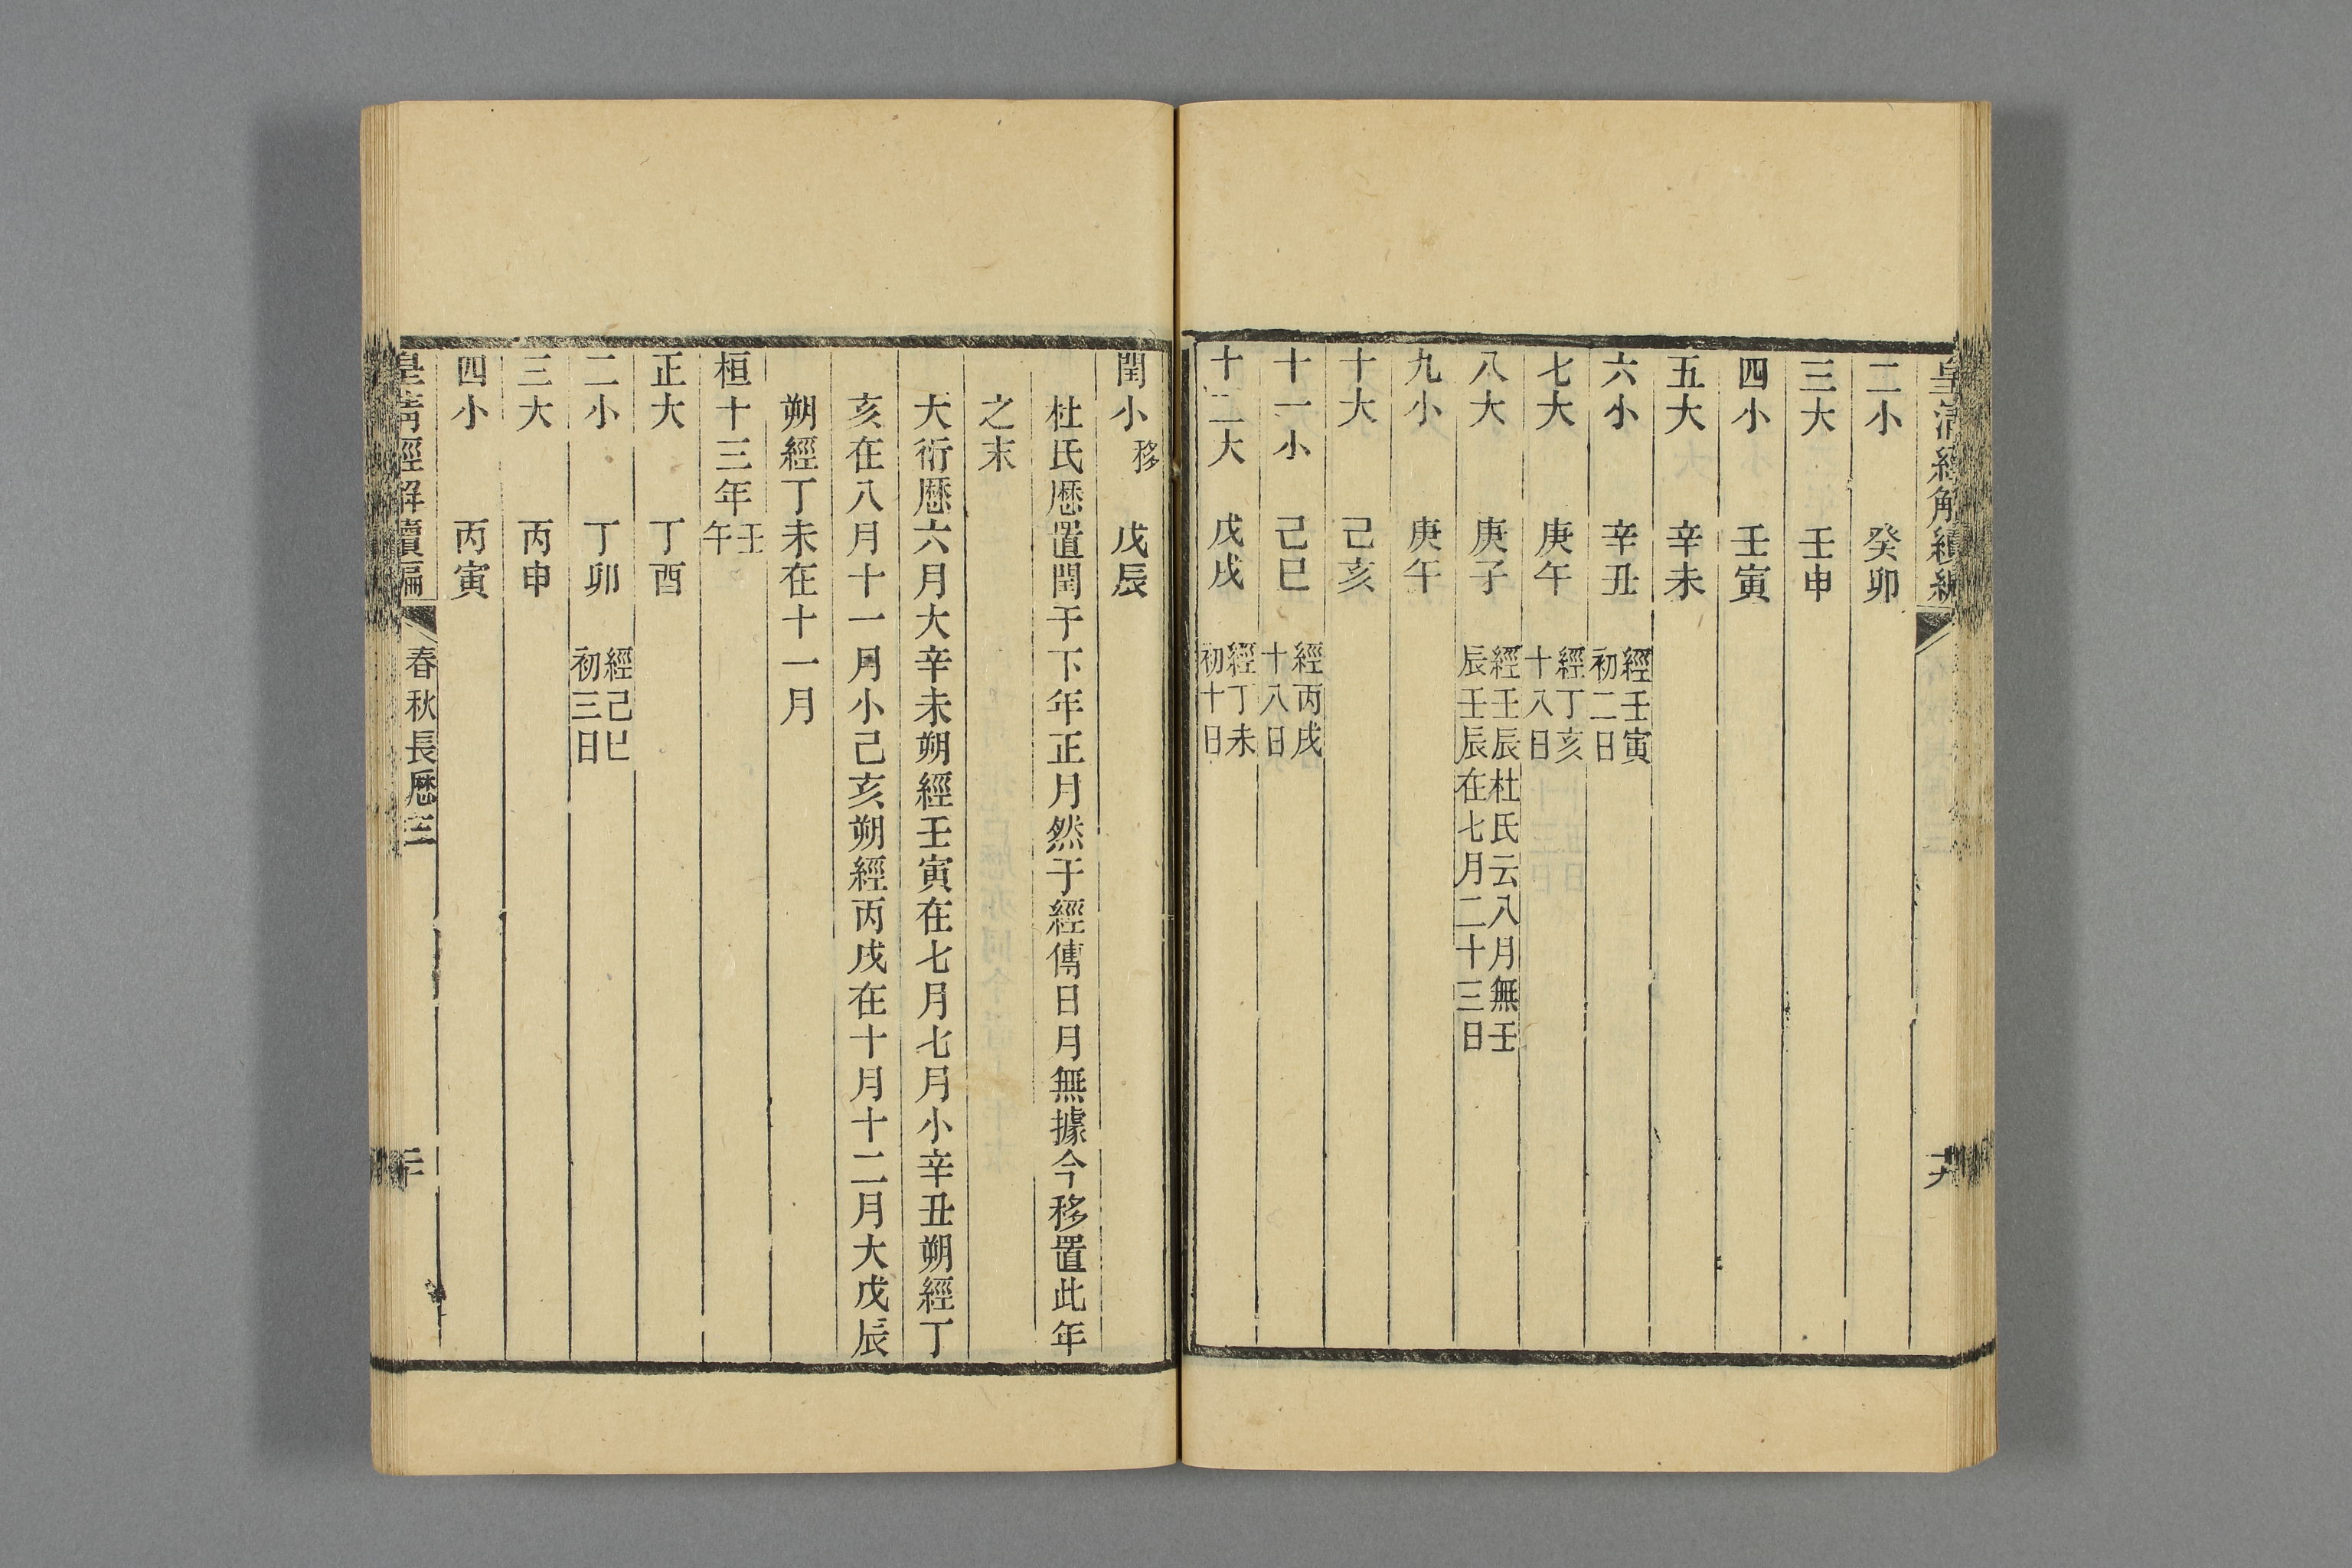 皇清經解續編
二小 癸卯
三大 壬申
四小 壬寅
五大 辛未
六小 辛丑 經壬寅
初二日
七大 庚午 經丁亥
十八日
八大 庚子 經壬辰杜氏云八月無壬
辰壬辰在七月二十三日
九小 庚午
十大 己亥
十一小 己巳 經丙戌
十八日
十二大 戊戌 經丁未
初十日
閏小 移 戊辰
杜氏厯置閏于下年正月然于經傳日月無據今移置此年
之末
大衍厯六月大辛未朔經壬寅在七月七月小辛丑朔經丁
亥在八月十一月小己亥朔經丙戌在十月十二月大戊辰
朔經丁未在十一月
桓十三年 壬
午
正大 丁酉
二小 丁卯 經己巳
初三日
三大 丙申
四小 丙寅
皇清經解續編 春秋長厯三